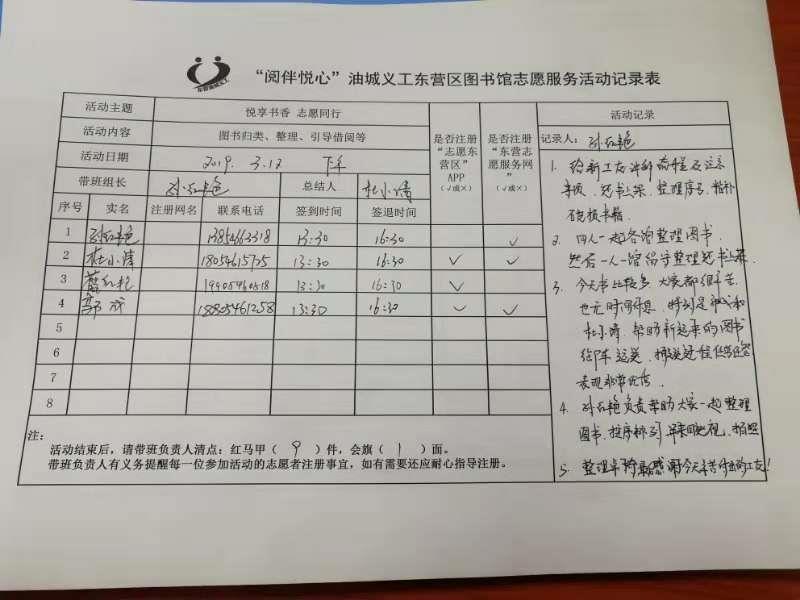 “阅伴悦心”油城义工东营区图书馆志愿服务活动记录表
活动主题 悦享书香 志愿同行
活动内容 图书归类、整理、引导借阅等
活动日期 2019. 3.12 下午
带班组长 孙红艳 总结人 杜小清
是否注册“志愿东营区”APP（√或×）
是否注册“东营志愿服务网”（√或×）
序号 实名 注册网名 联系电话 签到时间 签退时间
1 孙红艳 13:30 16:30 √
2 杜小清 18054615725 13:30 16:30 √ √
3 13:30 16:30 √
4 18805461258 13:30 16:30 √ √
5
6
7
8
注：
活动结束后，请带班负责人清点：红马甲（ 9 ）件，会旗（ 1 ）面。
带班负责人有义务提醒每一位参加活动的志愿者注册事宜，如有需要还应耐心指导注册。
活动记录
记录人：孙红艳
1. 给新工友讲解流程及注意
事项，还书上架，整理序号，粘补
破损书籍.
2. 四人一起各自整理图书.
然后一人一馆留守整理还书上架.
3. 今天书比较多 大家都很辛苦
也无时间休息，特别是 和
杜小清，帮助新运来的图书
卸车运送，
表现非常优秀.
4. 孙红艳负责帮助大家一起整理
图书，按序排列 拍照
5. 感谢今天辛苦付出的工友!